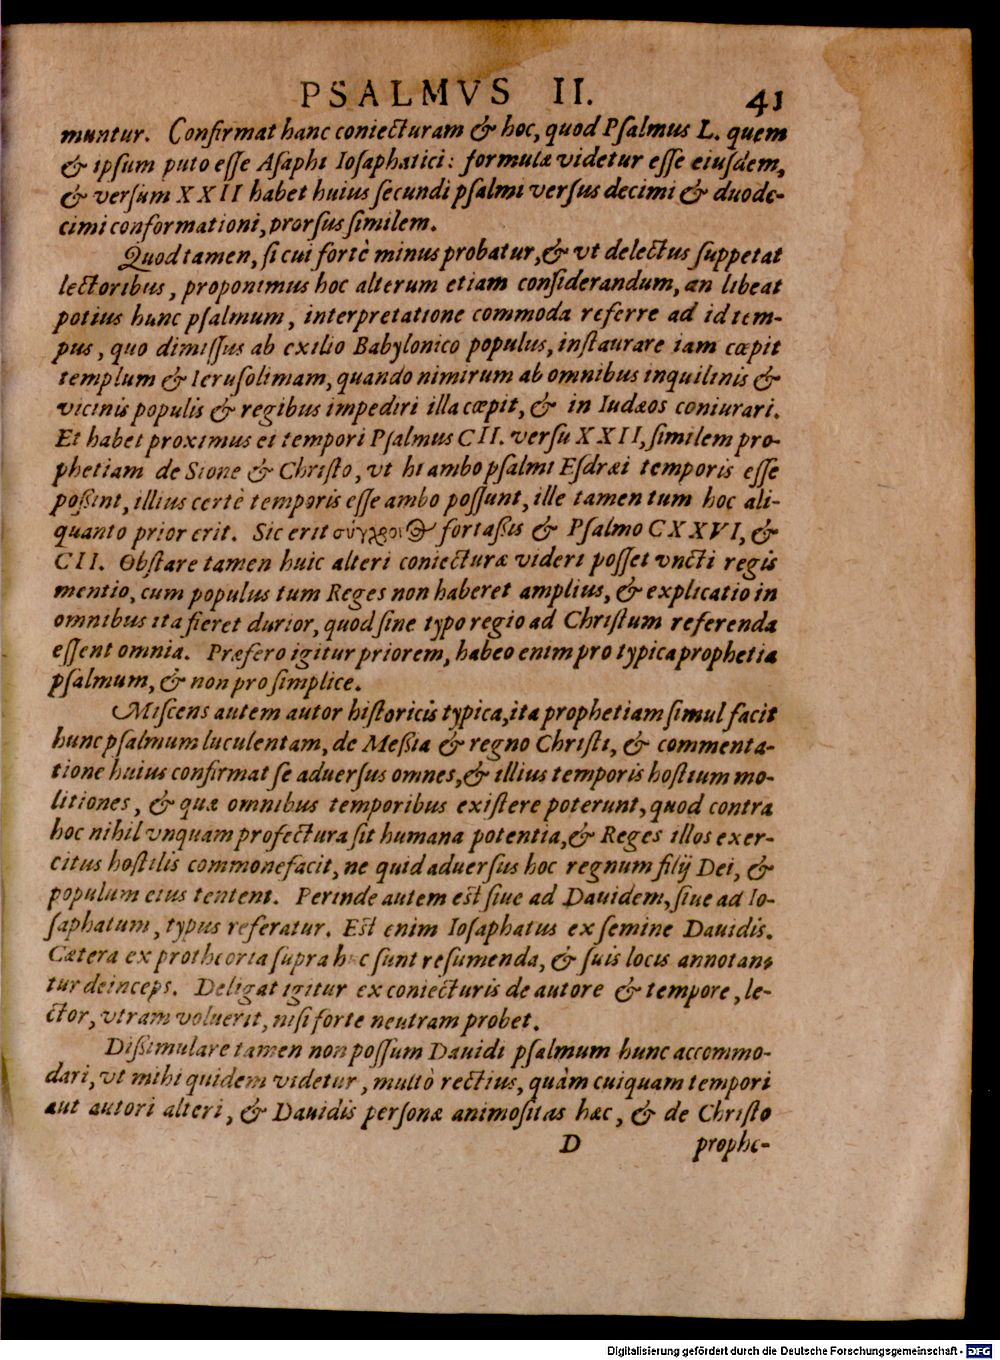 PSALMVS II. 41
muntur. Confirmat hanc coniecturam & hoc, quod Psalmus L. quem
& ipsum puto esse Asaphi Iosaphatici: formulæ videtur esse eiusdem,
& versum XXII habet huius secundi psalmi versus decimi & duode-
cimi conformationi, prorsus similem.
Quod tamen, si cui fortè minus probatur, & vt delectus suppetat
lectoribus, proponimus hoc alterum etiam considerandum, an libeat
potius hunc psalmum, interpretatione commoda referre ad id tem-
pus, quo dimissus ab exilio Babylonico populus, instaurare iam cœpit
templum & Ierusolimam, quando nimirum ab omnibus inquilinis &
vicinis populis & regibus impediri illa cœpit, & in Iudæos coniurari.
Et habet proximus ei tempori Psalmus CII. versu XXII, similem pro-
phetiam de Sione & Christo, vt hi ambo psalmi Esdræi temporis esse
poßint, illius certè temporis esse ambo possunt, ille tamen tum hoc ali-
quanto prior erit. Sic erit σύγχροι(Θ) fortaßis & Psalmo CXXVI, &
CII. Obstare tamen huic alteri coniecturæ videri posset vncti regis
mentio, cum populus tum Reges non haberet amplius, & explicatio in
omnibus ita fieret durior, quod sine typo regio ad Christum referenda
essent omnia. Præfero igitur priorem, habeo enim pro typica prophetia
psalmum, & non pro simplice.
Miscens autem autor historicis typica, ita prophetiam simul facit
hunc psalmum luculentam, de Meßia & regno Christi, & commenta-
tione huius confirmat se aduersus omnes, & illius temporis hostium mo-
litiones, & quæ omnibus temporibus existere poterunt, quod contra
hoc nihil vnquam profectura sit humana potentia, & Reges illos exer-
citus hostilis commonefacit, ne quid aduersus hoc regnum filij Dei, &
populum eius tentent. Perinde autem est siue ad Dauidem, siue ad Io-
saphatum, typus referatur. Est enim Iosaphatus ex semine Dauidis.
Cætera ex protheoria supra hæc sunt resumenda, & suis locis annotan-
tur deinceps. Deligat igitur ex coniecturis de autore & tempore, le-
ctor, vtram voluerit, nisi forte neutram probet.
Dißimulare tamen non possum Dauidi psalmum hunc accommo-
dari, vt mihi quidem videtur, multò rectius, quàm cuiquam tempori
aut autori alteri, & Dauidis personæ animositas hæc, & de Christo
D prophe-
Digitalisierung gefördert durch die Deutsche Forschungsgemeinschaft - DFG